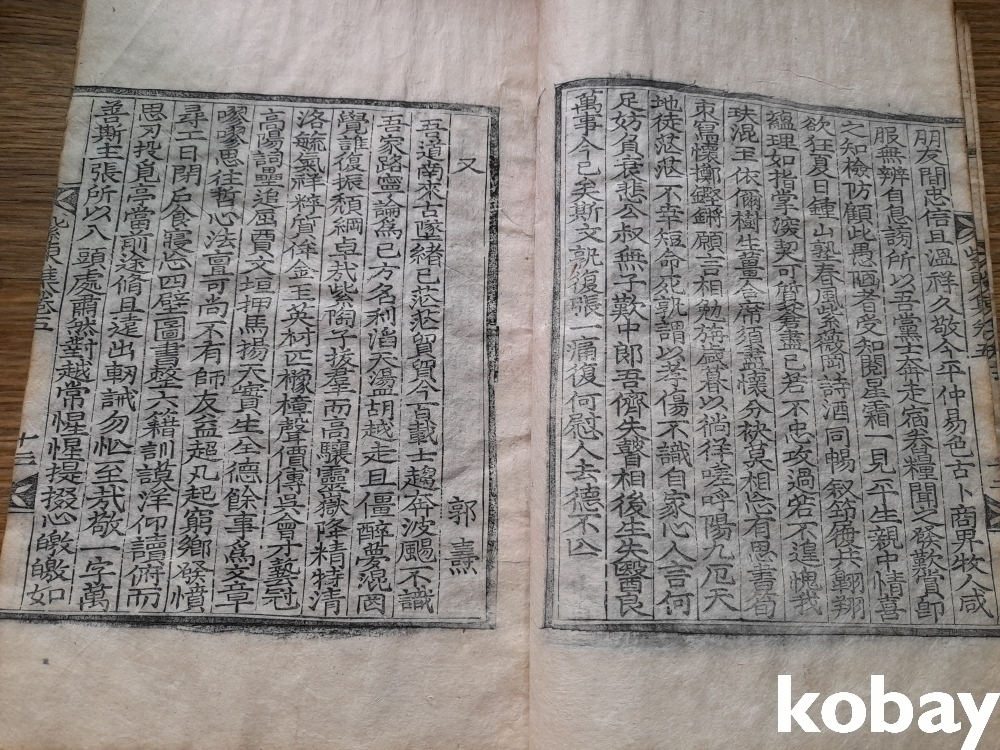 朋友開忠信且溫祥久敬今平仲易色古卜商男牧人咸
服無辨自息謗所以吾黨士奔走宿舂糧聞之發歎賞卽
之知檢防顧此愚陋者受知閱星霜一見平生親中情喜
欲狂夏日鍾山塾春風紫薇岡詩酒同暢叙節履共翺翔
蘊理如指掌深契可質蒼盡己若不忠攻過若不遑愧我
玞混玉依爾樹生薑合席須盡懷分袂莫相忘有思書苟
東爲懷擲鏗鏘願言相勉旃歲暮以徜徉嗟呼陽九厄天
地徒茫茫不幸短命死孰謂以孝傷不識自家心人言何
足妨負哀悲公叔無子歎中郎吾儕失聲相後生失醫良
萬事今已矣斯文孰復張一痛復何慰人去德不亾
又 郭 燾
吾道南來古墜緖已茫茫貿貿今百載士趨奔波颺不識
吾家路寧論爲己方名利滔天盪胡越走且僵醉夢混罔
覺誰復振頹綱卓哉紫陶子拔羣而高驤靈嶽降精特淸
洛毓氣祥粹質侔金玉英材匹櫲樟聲價傳吳會才藝冠
高陽詞壘追屈賈文垣押馬揚天實生全德餘事爲文章
嘐嘐思往哲心法亶可尚不有師友益超凡起窮鄕發憤
尋工日閉戶食寢忘四壁圖書整六籍訓謨洋仰讀俯而
思刃投覓亭當前途脩且遠出軔誡勿忙至哉敬一字萬
善斯主張所以入頭處肅然對越常惺惺提掇心皦皦如
卷五
十二